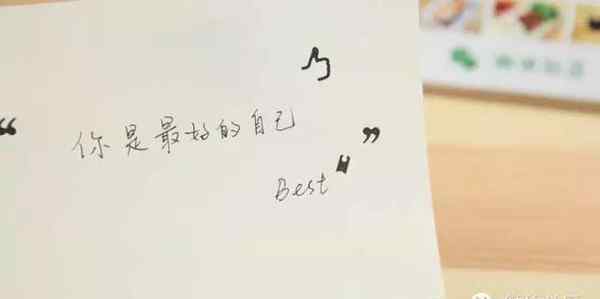 “ 你是最好的自己 ”
Best